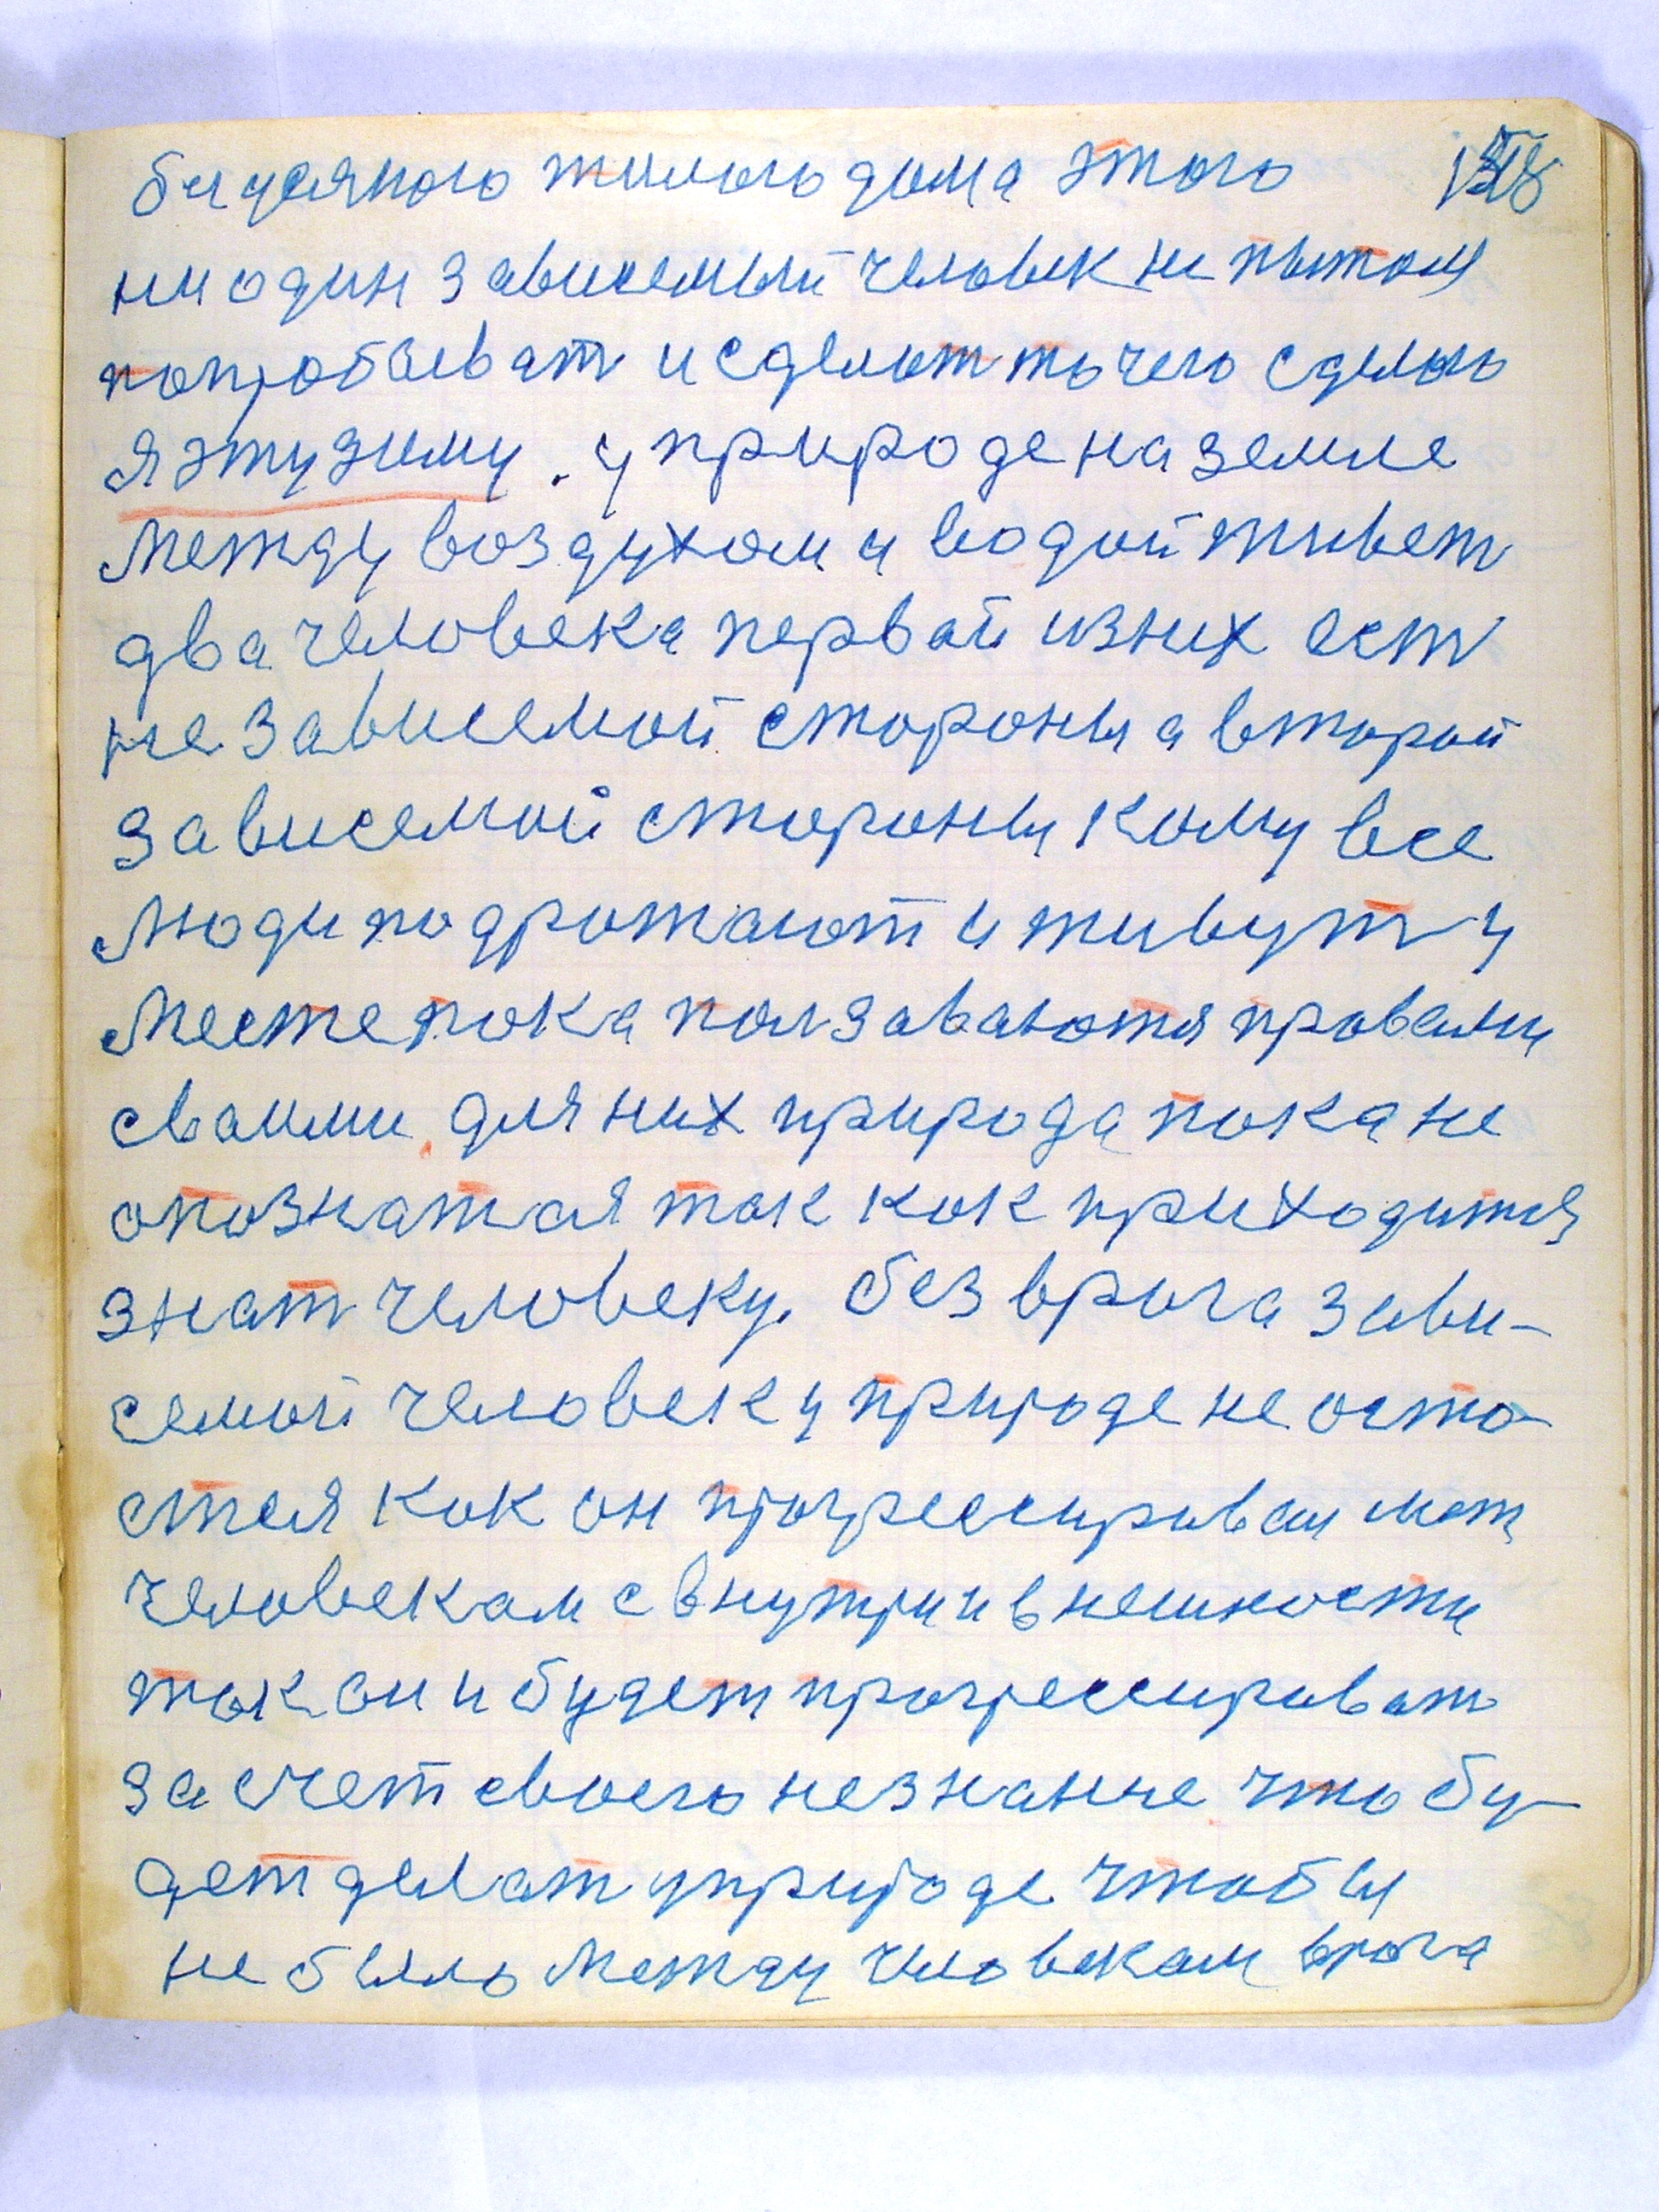 бидсяпого жилого дома этого
ни один зависемый человек не пытался
попробыват и сделат то чего сделал
я эту зиму. у природе на земле
между воздухом и водой живет
два человека первай из них ест
не зависемой стороны а второй
зависемой стороны кому все
люди подрожают и живут у
месте пока ползаваются правами
сваими для них природа пока не
опознатая так как приходится
знат человеку. без врага зави-
семой человек у природе не оста-
ется как он прогрессировал меж
человекам с внутри и внешности
так он и будет прогрессироват
за счет своего незнание что бу-
дет делат у природе чтобы
не было между человекам врага